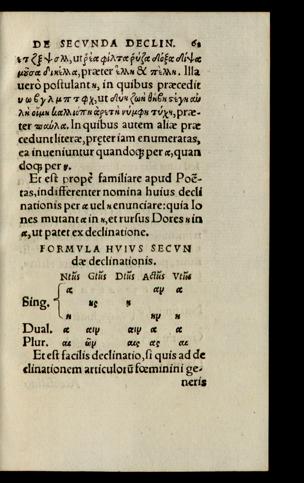 DE SECVNDA DECLIN. 62
σ τ ζ ξ ψ σλλ, ut ῥέα φίλτα ῥύζα δόξα δίψα
μοῦσα δικέλλα, præter ἕλλη & πέλλη. Illa
uero postulant η, in quibus præcedit
υ ω θ γ λ μ π τ φ χ, ut δίυη ζωὴ θήβη στέγη αὐ
λὴ οἴμη καλλιόπη ἀρετὴ νύμφη τύχη, præ-
ter παῦλα. In quibus autem aliæ præ
cedunt literæ, preter iam enumeratas,
ea inueniuntur quandoq; per α, quan
doq; per η.
Et est propè familiare apud Poë-
tas, indifferenter nomina huius decli
nationis per α uel η enunciare: quia Io
nes mutant α in η, et rursus Dores η in
α, ut patet ex declinatione.
FORMVLA HVIVS SECVN
dæ declinationis.
Ntũs Gtũs Dtũs Actũs Vtũs
α αν α
Sing. ης η
η ην η
Dual. α αιν αιν α α
Plur. αι ῶν αις ας αι
Et est facilis declinatio, si quis ad de
clinationem articulorũ fœminini ge-
neris